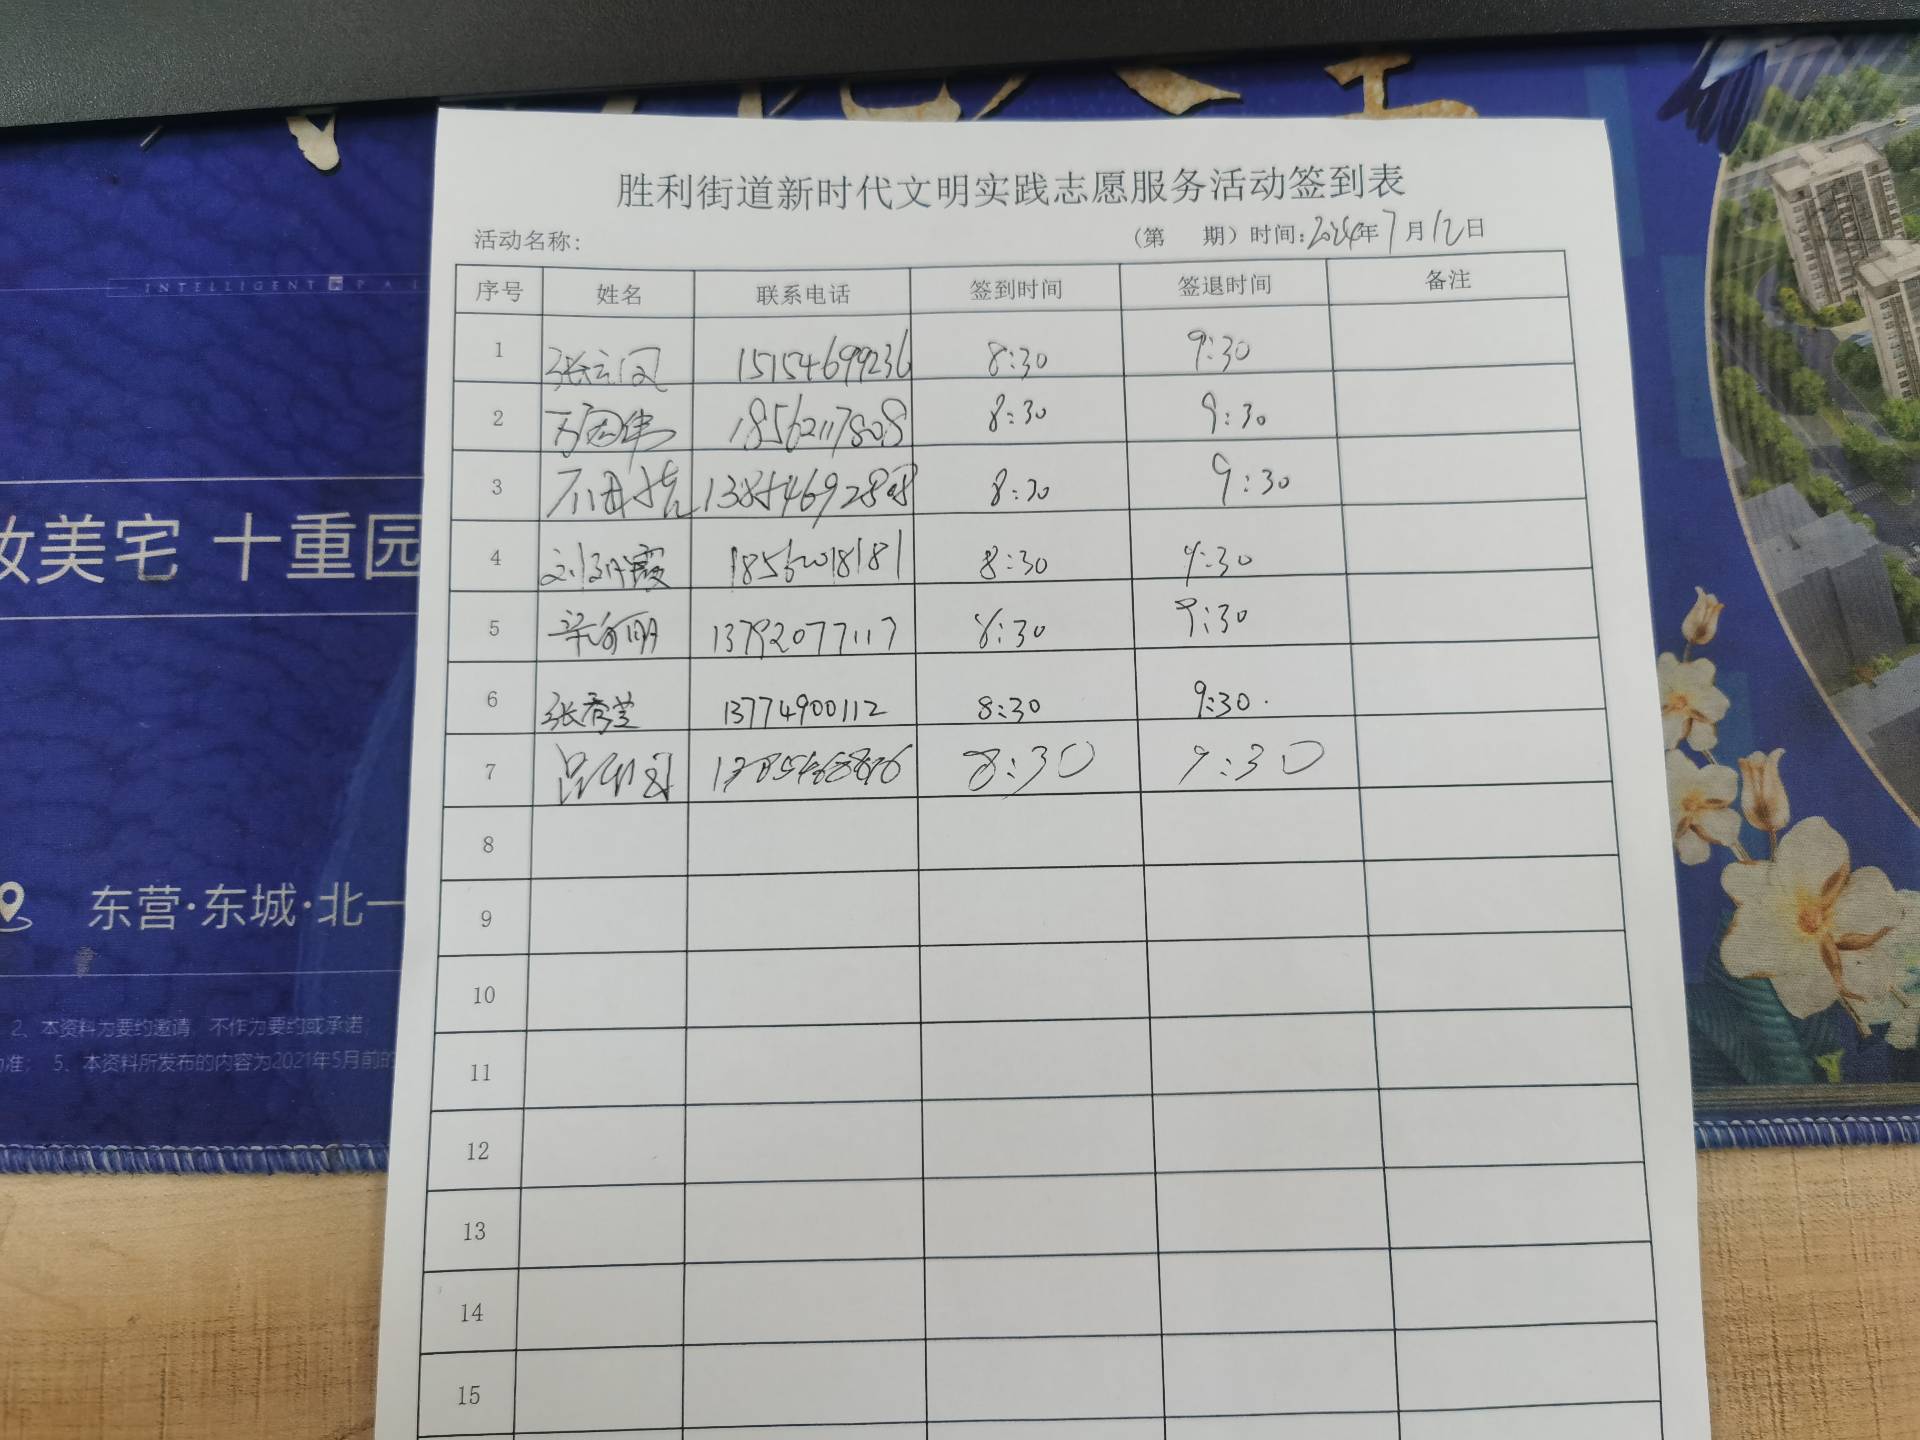 INTELLIGENT PAI
妆美宅 十重园
东营·东城·北一
2、本资料为要约邀请，不作为要约或承诺；
为准； 5、本资料所发布的内容为2021年5月前的
胜利街道新时代文明实践志愿服务活动签到表
活动名称： （第 期）时间：2024年7月12日
序号 姓名 联系电话 签到时间 签退时间 备注
1 张云凤 15154699236 8:30 9:30
2 18562117808 8:30 9:30
3 8:30 9:30
4 刘 霞 8:30 9:30
5 13792077117 8:30 9:30
6 张秀兰 13774900112 8:30 9:30
7 8:30 9:30
8
9
10
11
12
13
14
15